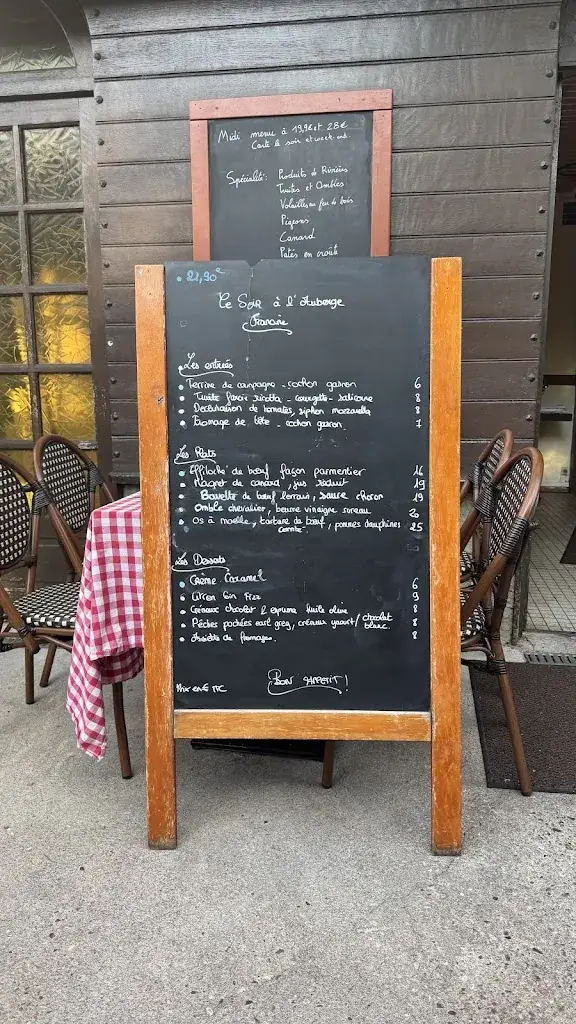 Midi menu à 19,90€ et 28€
Carte le soir et week-end.
Spécialité: Produits de
Truites et Ombles
Volailles au feu de bois
Pigeons
Canard
Patés en croûte
• 21,90€
Le Soir à l'Auberge
Les entrées
• Terrine de campagne - cochon gascon 6
• Truite façon risotto - courgette - salicorne 8
• Déclinaison de tomates, siphon mozzarella 8
• Fromage de tête - cochon gascon 7
Les Plats
• Effiloché de bœuf façon parmentier 16
• Magret de canard, jus réduit 19
• Bavette de bœuf lorrain, sauce choron 19
• Omble chevalier, beurre vinaigre sureau 20
• Os à moelle, tartare de bœuf, pommes dauphines 25
Les Desserts
• Crème Caramel 6
• Citron Gin Fizz 9
• Crémeux chocolat & espuma huile olive 8
• Pêches pochées earl grey, crémeux yaourt/ chocolat 8
blanc.
• Assiette de fromages. 8
Prix en € TTC
Bon APPETIT!